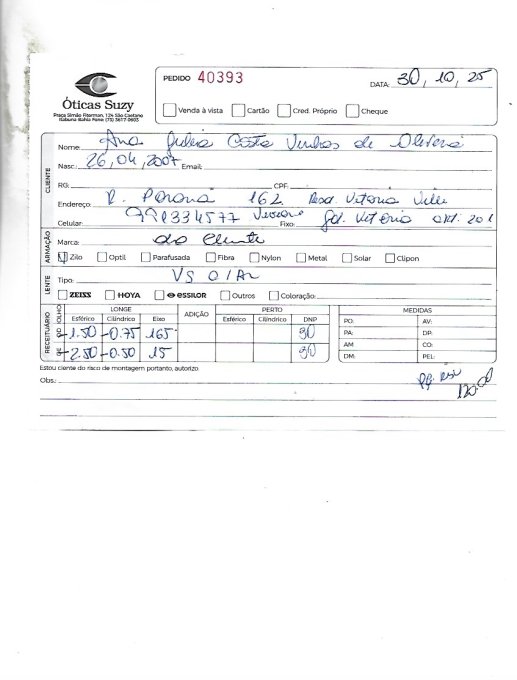 Óticas Suzy
Praça Simão Fiterman, 124 São Caetano
Itabuna Bahia Fone (73) 3617-0603
PEDIDO 40393
DATA: 30, 10, 25
Venda à vista Cartão Cred. Próprio Cheque
CLIENTE
Nome: Ana Costa de
Nasc.: 26, 04, 2007 Email:
RG: CPF:
Endereço: R. 162 Resd. Vitoria
Celular: 991334577 Fixo: Vitória 201
ARMAÇÃO
Marca: do Cliente
Zilo Optil Parafusada Fibra Nylon Metal Solar Clipon
LENTE
Tipo: VS
ZEISS HOYA essilor Outros Coloração:
RECEITUÁRIO
OLHO LONGE ADIÇÃO PERTO MEDIDAS
Esférico Cilíndrico Eixo Esférico Cilíndrico DNP
OD -1.50 -0.75 165 30
OE -2.50 -0.50 15 30
PO: AV:
PA: DP:
AM CO:
DM: PEL:
Estou ciente do risco de montagem portanto, autorizo.
Obs.: 120.00